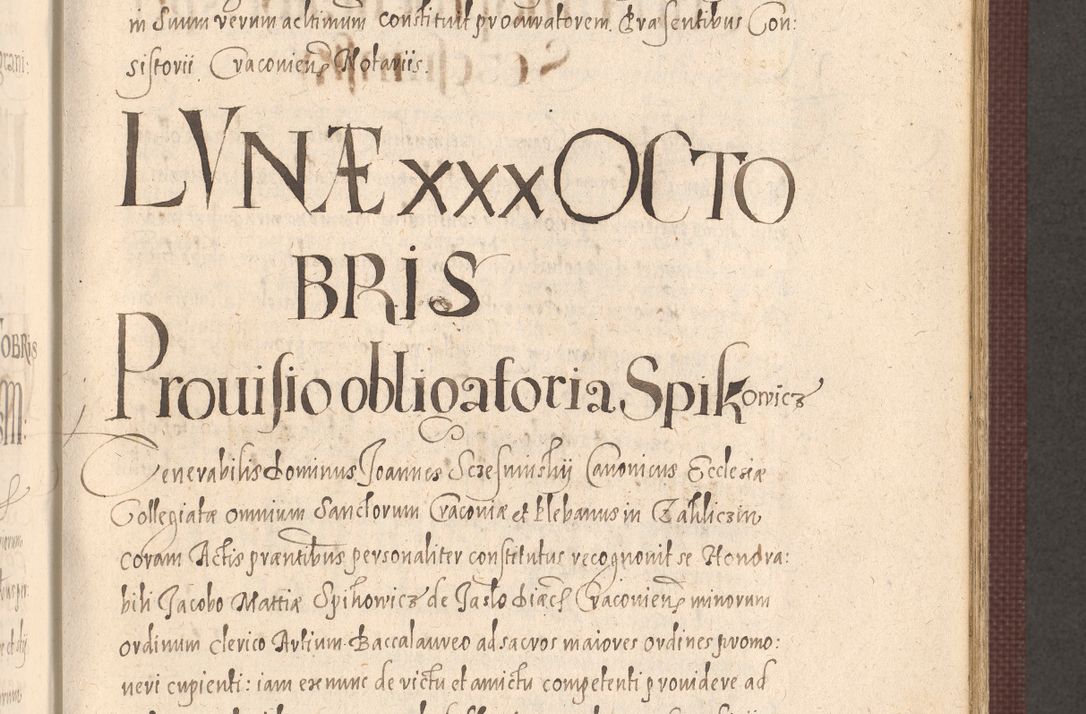 in suum verum ac litimum constituit procuratorem. Præsentibus Con:
sistorii Cracovien Notariis.
LVNÆ XXX OCTO
BRIS
Prouisio obligatoria Spikowicz
Venerabilis dominus Joannes Sczesninskij Canonicus Ecclesiæ
Collegiatæ omnium Sanctorum Cracoviæ et plebanus in
coram Actis præntibus personaliter constitutus recognouit se Honora:
bili Jacobo Mattiæ Spikowicz de Jaslo diæc Cracovien minorum
ordinum clerico Artium Baccalaureo ad sacros maiores ordines promo:
veri cupienti: iam ex nunc de victu et amictu competenti providere ad